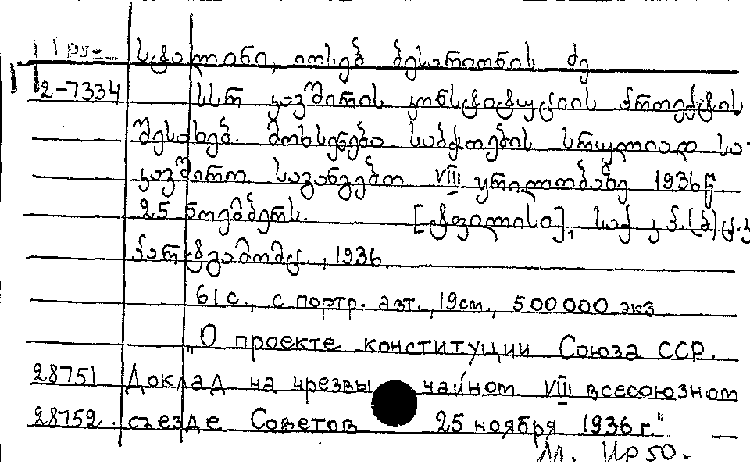 სტალინი, იოსებ ბესარიონის ძე
2-7334 სსრ კავშირის კონსტიტუციის პროექტის
შესახებ. მოხსენება საბჭოების სრულიად სა-
კავშირო საგანგებო VIII ყრილობაზე 1936 წ
25 ნოემბერს. [ტფილისი], საქ. კ. პ. (ბ) ც. კ
პარტგამომც., 1936
61 с., с портр. авт., 19 см., 500000 экз
"О проекте конституции Союза ССР.
28751 Доклад на чрезвычайном VIII всесоюзном
28752. съезде Советов 25 ноября 1936 г."